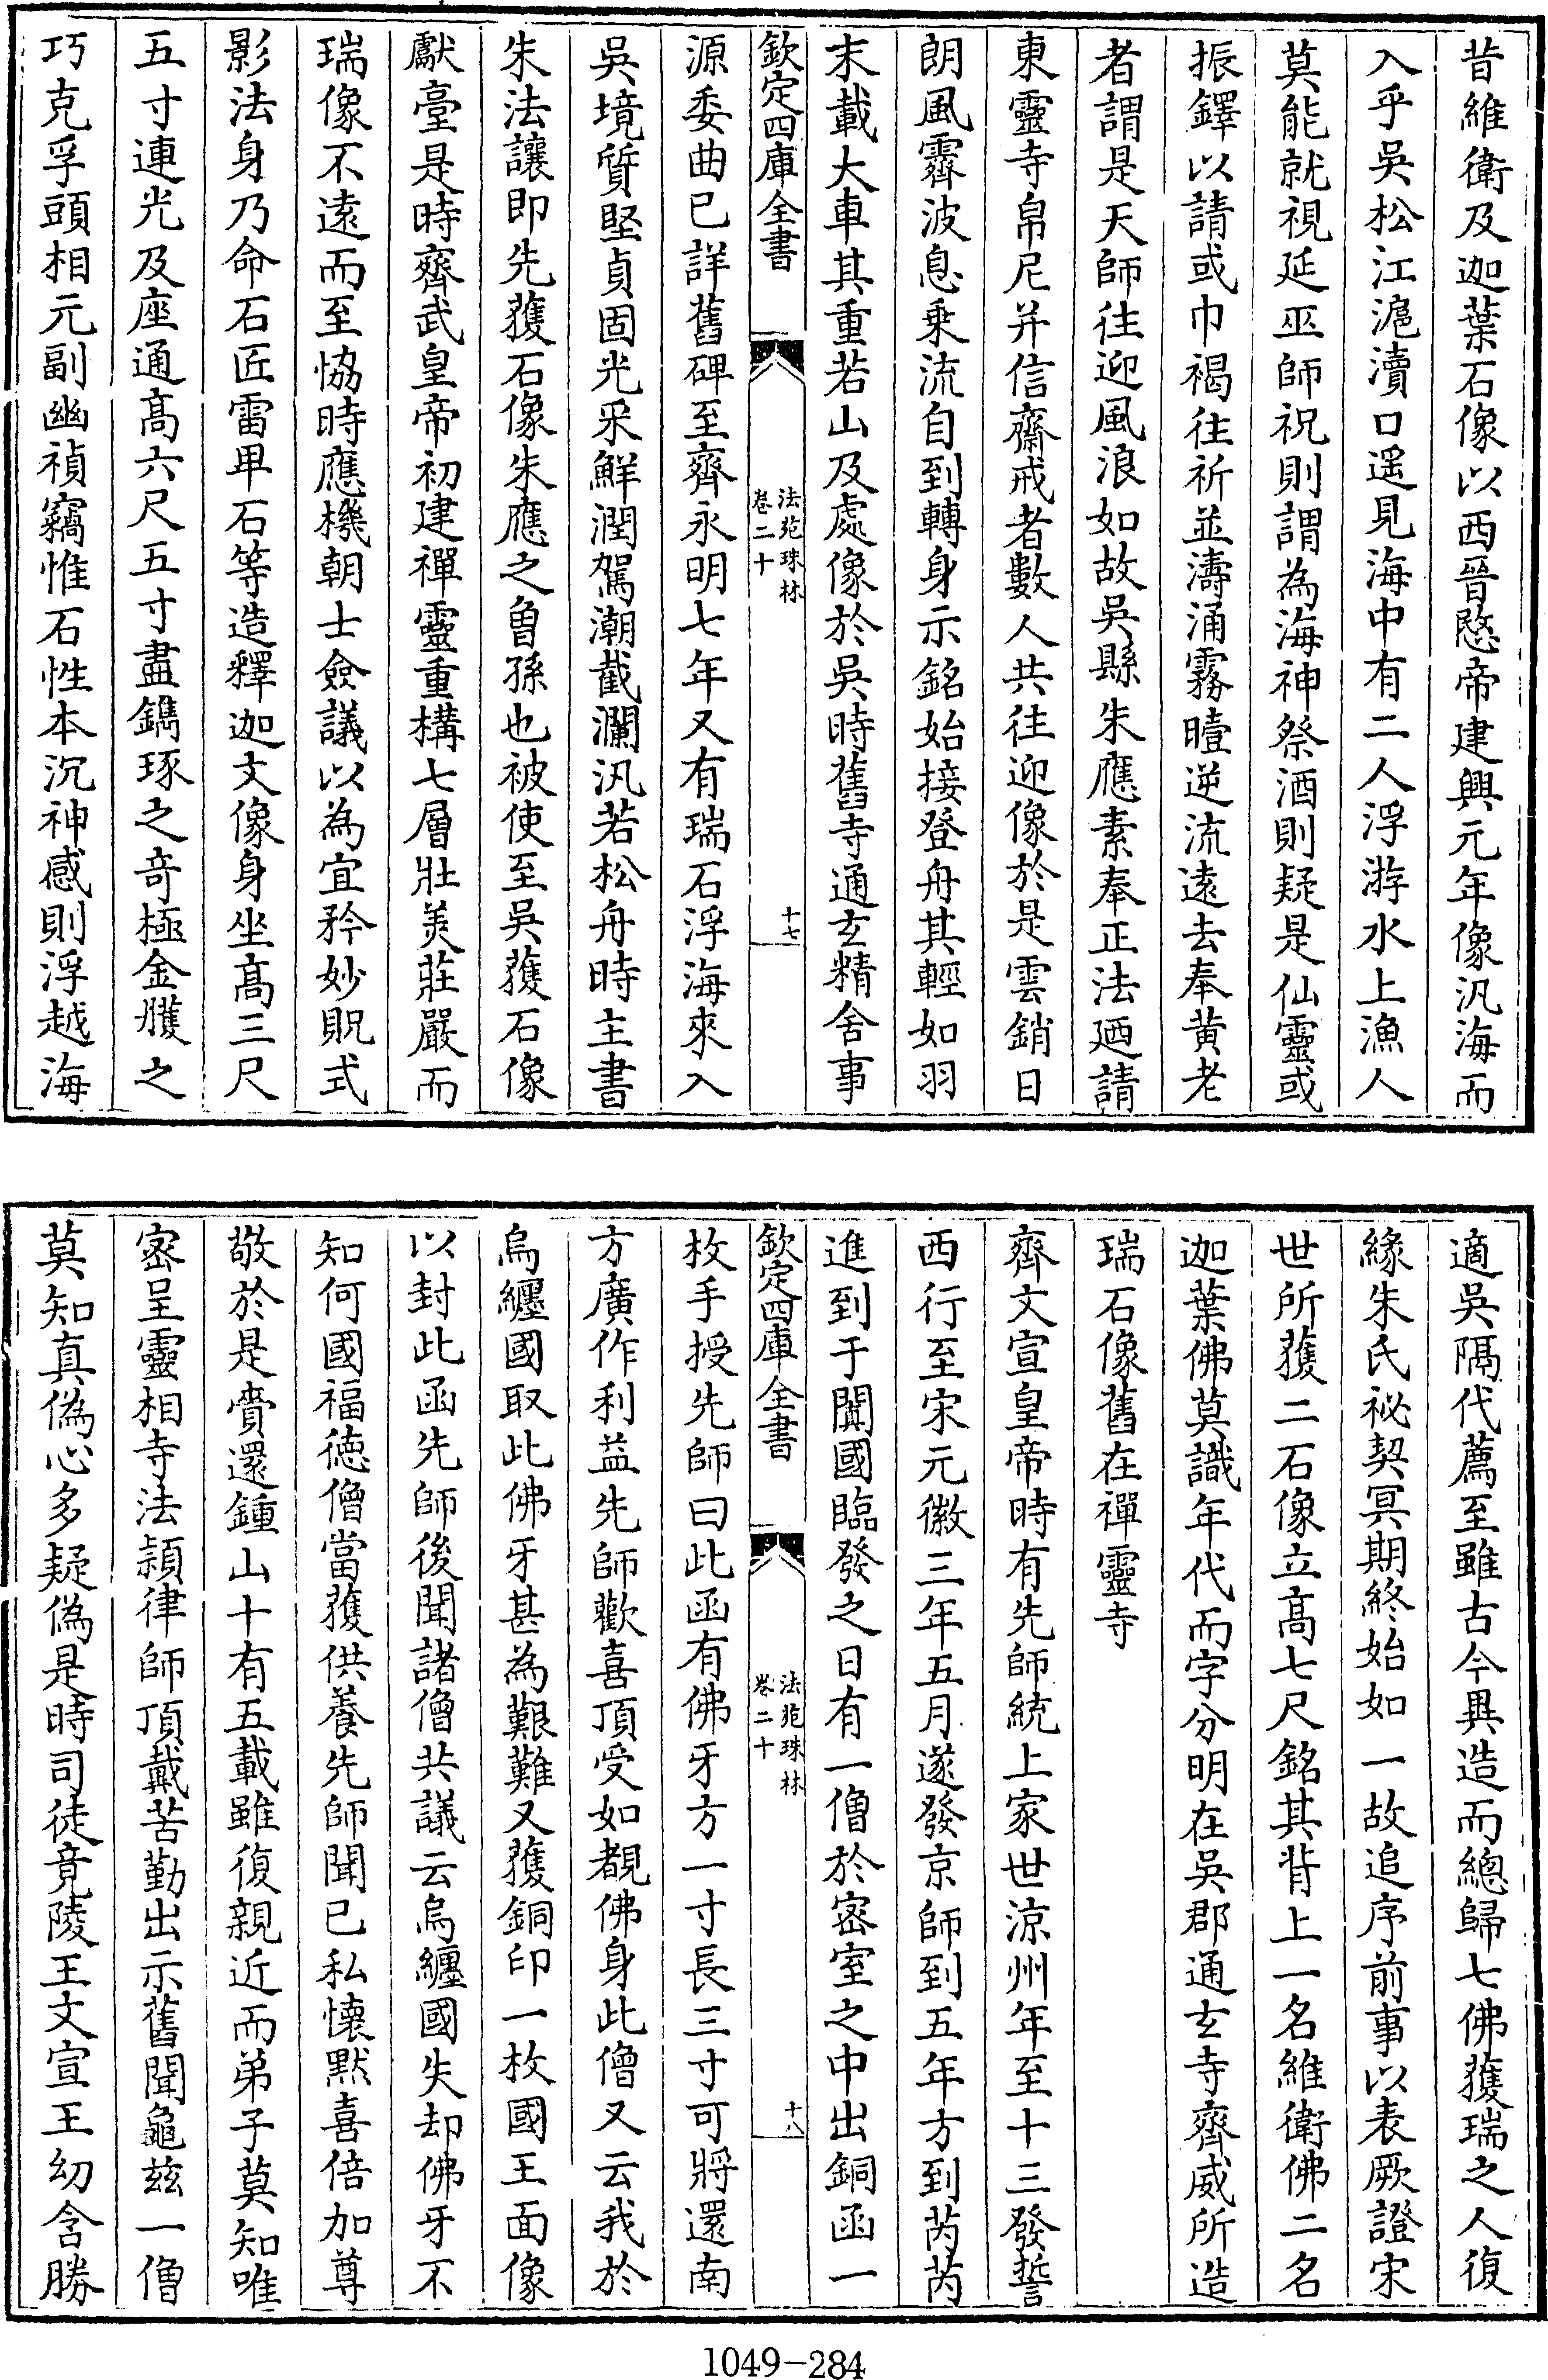 昔維衛及迦葉石像以西晉愍帝建興元年像汎海而
入乎吳松江滬瀆口遥見海中有二人浮游水上漁人
莫能就視延巫師祝則謂為海神祭酒則疑是仙靈或
振鐸以請或巾褐往祈並濤涌霧曀逆流遠去奉黄老
者謂是天師往迎風浪如故吳縣朱應素奉正法廼請
東靈寺帛尼并信齋戒者數人共往迎像於是雲銷日
朗風霽波息乗流自到轉身示銘始接登舟其輕如羽
末載大車其重若山及處像於吳時舊寺通玄精舍事
欽定四庫全書
法苑珠林
卷二十
十七
源委曲已詳舊碑至齊永明七年又有瑞石浮海來入
吳境質堅貞固光采鮮潤駕潮截瀾汎若松舟時主書
朱法讓即先獲石像朱應之曾孫也被使至吳獲石像
獻臺是時齊武皇帝初建禪靈重構七層壯美莊嚴而
瑞像不遠而至恊時應機朝士僉議以為宜矜妙貺式
影法身乃命石匠雷甲石等造釋迦文像身坐高三尺
五寸連光及座通高六尺五寸盡鐫琢之竒極金雘之
巧克孚頭相元副幽禎竊惟石性本沉神感則浮越海
適吳隔代薦至雖古今異造而總歸七佛獲瑞之人復
緣朱氏祕契冥期終始如一故追序前事以表厥證宋
世所獲二石像立高七尺銘其背上一名維衛佛二名
迦葉佛莫識年代而字分明在吳郡通玄寺齊威所造
瑞石像舊在禪靈寺
齊文宣皇帝時有先師統上家世涼州年至十三發誓
西行至宋元徽三年五月遂發京師到五年方到芮芮
進到于闐國臨發之日有一僧於密室之中出銅函一
欽定四庫全書
法苑珠林
卷二十
十八
枚手授先師曰此函有佛牙方一寸長三寸可將還南
方廣作利益先師歡喜頂受如覩佛身此僧又云我於
烏纒國取此佛牙甚為艱難又獲銅印一枚國王面像
以封此函先師後聞諸僧共議云烏纒國失却佛牙不
知何國福徳僧當獲供養先師聞已私懐黙喜倍加尊
敬於是賫還鍾山十有五載雖復親近而弟子莫知唯
密呈靈相寺法頴律師頂戴苦勤出示舊聞龜兹一僧
莫知真偽心多疑偽是時司徒竟陵王文宣王幼含勝
1049-284